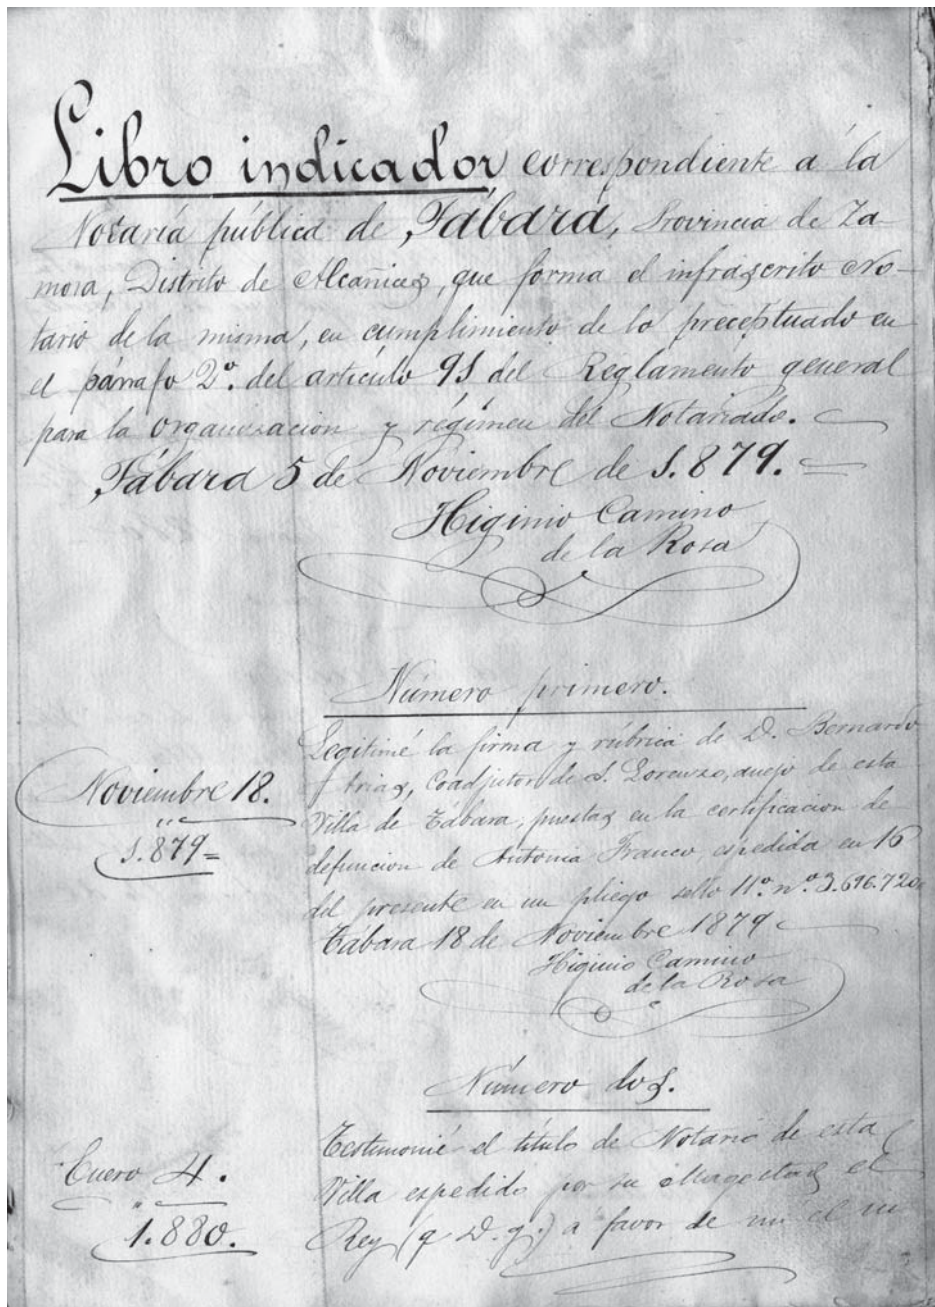 Libro indicador correspondiente á la
Notaría pública de Tábara, Provincia de Za-
mora, Distrito de Alcañices, que forma el infrascrito No-
tario de la misma, en cumplimiento de lo preceptuado en
el párrafo 2º. del artículo 91 del Reglamento general
para la organizacion y régimen del Notariado.
Tábara 5 de Noviembre de 1.879.
Higinio Camino
de la Rosa
Número primero.
Noviembre 18.
1.879=
Legitimé la firma y rúbrica de D. Bernardo
Frias, Coadjutor de S. Lorenzo, anejo de esta
Villa de Tábara, puestas en la certificacion de
defuncion de Antonia Franco, espedida en 16
del presente en un pliego sello 11º. nº. 3.696.720.
Tábara 18 de Noviembre 1879
Higinio Camino
de la Rosa
Número dos.
Enero 4.
1.880.
Testimonié el título de Notario de esta
Villa espedido por su Magestad el
Rey (q D. g.) a favor de mi el